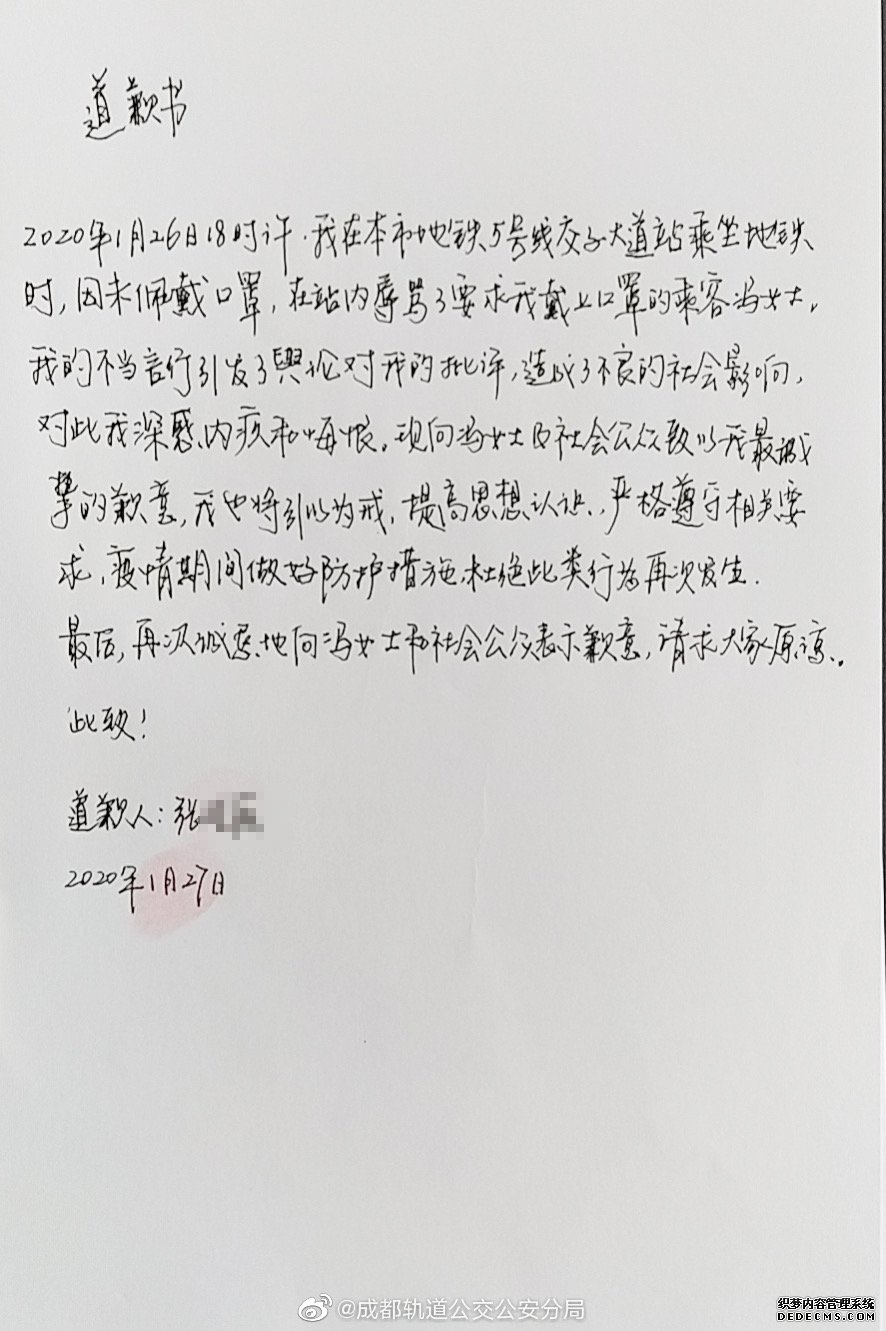 道歉书
2020年1月26日18时许,我在本市地铁5号线交子大道站乘坐地铁
时,因未佩戴口罩,在站内辱骂了要求我戴上口罩的乘客冯女士,
我的不当言行引发了舆论对我的批评,造成了不良的社会影响,
对此我深感内疚和悔恨。现向冯女士及社会公众致以我最诚
挚的歉意,我也将引以为戒,提高思想认识,严格遵守相关要
求,疫情期间做好防护措施,杜绝此类行为再次发生.
最后,再次诚恳地向冯女士和社会公众表示歉意,请求大家原谅.
此致!
道歉人:张
2020年1月27日
@成都轨道公交公安分局
织梦内容管理系统
DEDECMS.COM